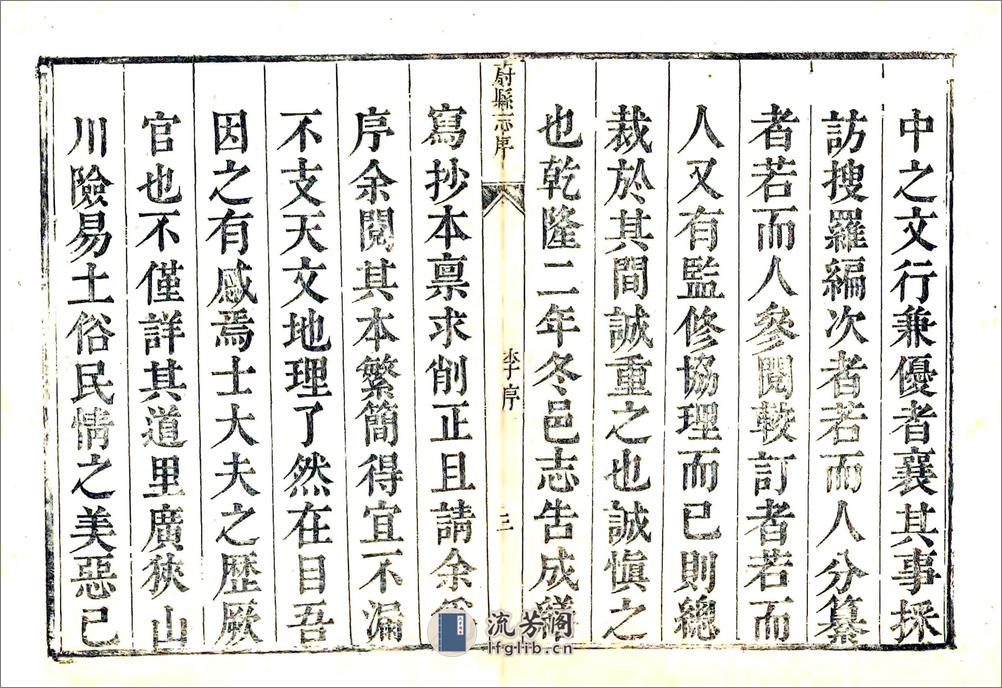 中之文行兼優者襄其事採
訪搜羅編次者若而人分纂
者若而人參閱較訂者若而
人又有監修協理而已則總
裁於其間誠重之也誠愼之
也乾隆二年冬邑志告成繕
蔚縣志序
李序
三
寫抄本稟求削正且請余爲
序余閱其本繁簡得宜不漏
不支天文地理了然在目吾
因之有感焉士大夫之歷厥
官也不僅詳其道里廣狹山
川險易土俗民情之美惡已
流芳閣
lfglib.cn